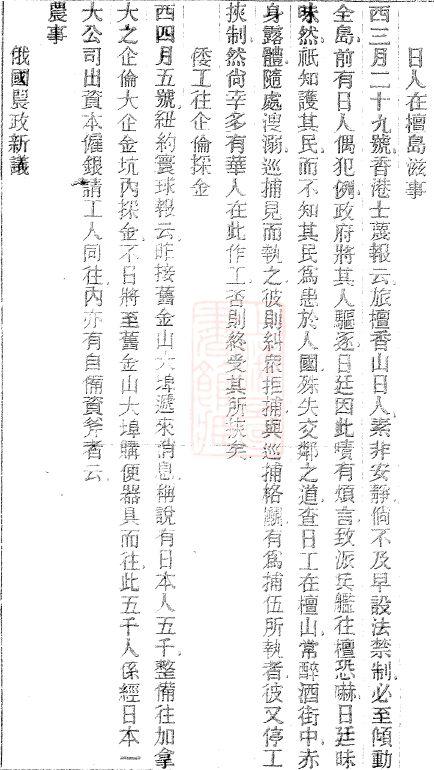 日人在檀島滋事
西三月二十九號香港士蔑報云旅檀香山日人素非安靜倘不及早設法禁制必至傾動
全島前有日人偶犯例政府將其人驅逐日廷因此嘖有煩言致派兵艦往檀恐嚇日廷味
味然祇知護其民而不知其民爲患於人國殊失交鄰之道查日工在檀山常醉酒街中赤
身露體隨處溲溺巡捕見而執之彼則糾衆拒捕與巡捕格鬭有爲捕伍所執者彼又停工
挾制然尙幸多有華人在此作工否則終受其所挾矣
倭工往企倫採金
西四月五號紐約寰球報云昨接舊金山大埠遞來消息稱說有日本人五千整備往加拿
大之企倫大企金坑內採金不日將至舊金山大埠購便器具而往此五千人係經日本一
大公司出資本僱銀請工人同往內亦有自備資斧者云
農事
俄國農政新議